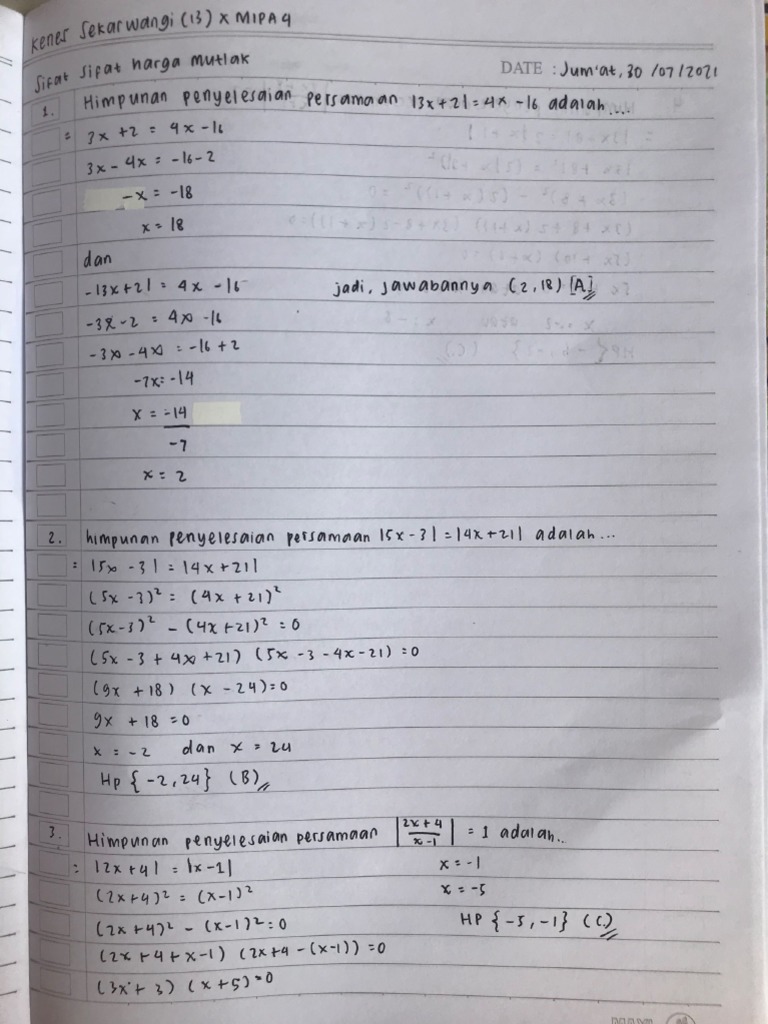 Kenes Sekarwangi (13) X MIPA 4
Sifat sifat harga mutlak
DATE : Jum'at, 30 /07/2021
1. Himpunan penyelesaian persamaan |3x+2| = 4x -16 adalah....
= 3x +2 = 4x -16
3x - 4x = -16 -2
-x = -18
x = 18
dan
-|3x+2| = 4x -16
jadi, jawabannya (2,18) [A]
-3x -2 = 4x -16
-3x -4x = -16 +2
-7x = -14
x = -14
-7
x = 2
2. himpunan penyelesaian persamaan |5x -3| = |4x+21| adalah...
= |5x -3| = |4x+21|
(5x -3)² = (4x +21)²
(5x-3)² - (4x+21)² = 0
(5x -3 + 4x +21) (5x -3 -4x -21) = 0
(9x +18) (x -24)=0
9x +18 =0
x = -2 dan x = 24
Hp {-2,24} (B)
3. Himpunan penyelesaian persamaan |2x+4/x-1| = 1 adalah..
= |2x+4| = |x-1|
x = -1
(2x+4)² = (x-1)²
x = -5
(2x+4)² - (x-1)² = 0
HP {-5,-1} (C)
(2x +4 + x-1) (2x+4 -(x-1)) =0
(3x + 3) (x+5) = 0